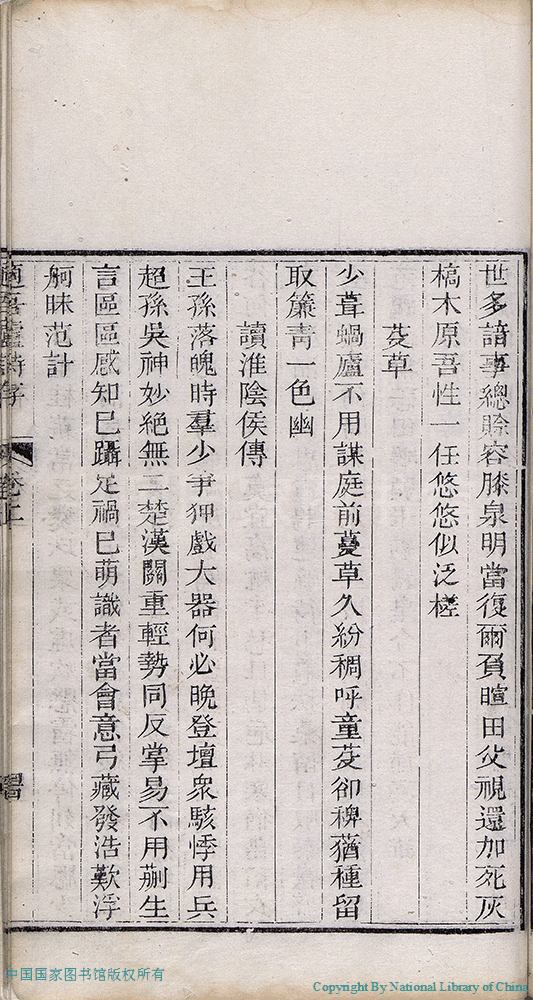 世多諳事總賒容膝泉明當復爾負暄田父視還加死灰
槁木原吾性一任悠悠似泛槎
芟草
少葺蝸廬不用謀庭前蔓草久紛稠呼童芟卻稗蕕種留
取簾青一色幽
讀淮陰侯傳
王孫落魄時羣少爭狎戲大器何必晚登壇眾駭悸用兵
超孫吳神妙絕無二楚漢關重輕勢同反掌易不用蒯生
言區區感知已躡足禍已萌識者當會意弓藏發浩歎浮
舸昧范計
卷上
中国国家图书馆版权所有
Copyright By National Library of China